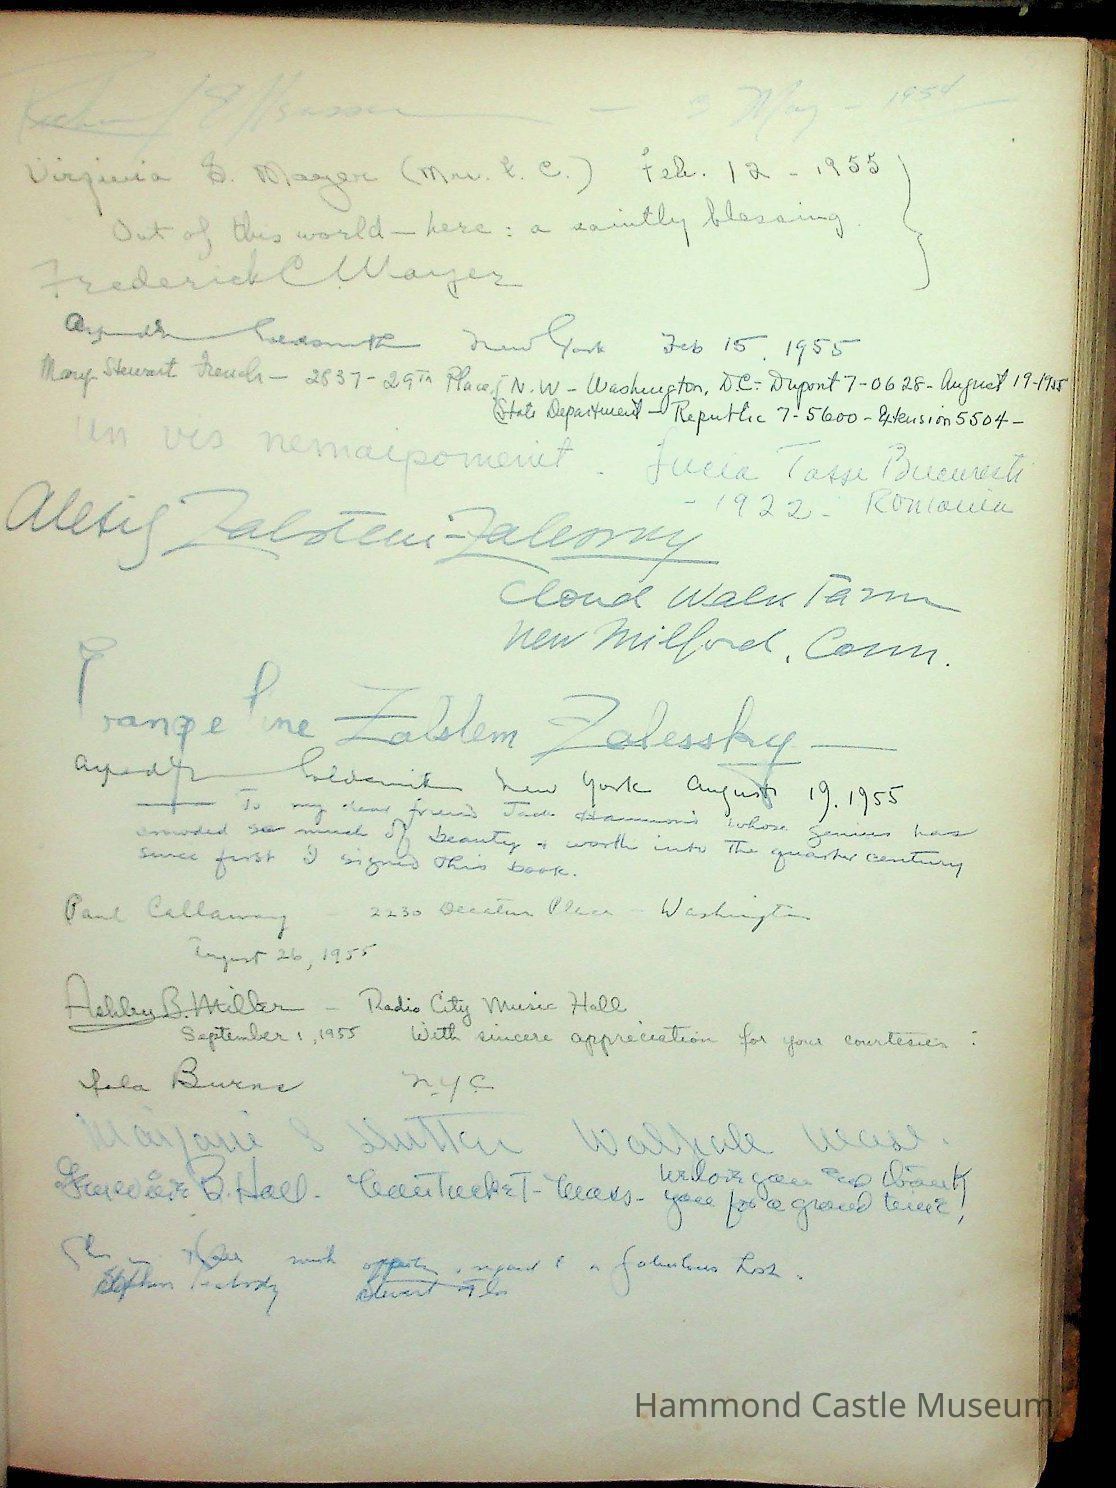 May - 1954
Virginia S. Mayer (Mrs. F. C.) Feb. 12 - 1955
Out of this world - here : a saintly blessing
Frederick C Mayer
Goldsmith New York Feb 15, 1955
Mary Stewart French - 2837 - 29th Place, N.W - Washington, D.C. - Dupont 7-0628 - August 19-1955
(State Department - Republic 7-5600 - Extension 5504 -
Un vis nemaipomenit. Lucia Tasse Bucuresti
- 1922 - Romania
Alexis Zalstem-Zalessky
Cloud Walk Farm
New Milford, Conn.
Zalstem Zalessky
Goldsmith New York August 19, 1955
To my dear friend Jack Hammond whose genius has
crowded so much of beauty & worth into the quarter century
since first I signed this book.
Paul Callaway - 2230 Decatur Place - Washington
August 26, 1955
Ashley B. Miller - Radio City Music Hall
September 1, 1955 With sincere appreciation for your courtesies :
Burns NYC
Marjorie S Walpole Mass.
B. Hall - Nantucket - Mass - We love you and thank
you for a grand time!
with regard a fabulous host.
Peabody
Hammond Castle Museum